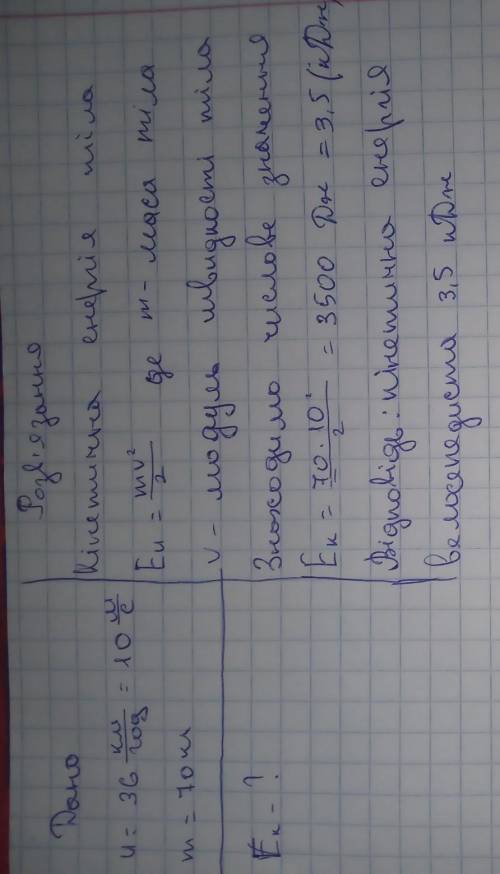 Дано
u = 36 км/год = 10 м/с
m = 70 кг
Eк - ?
Розв'язання
Кінетична енергія тіла
Eк = mv²/2 де m - маса тіла
v - модуль швидкості тіла
Знаходимо числове значення
Eк = 70 · 10²/2 = 3500 Дж = 3,5 (кДж)
Відповідь: кінетична енергія
велосипедиста 3,5 кДж